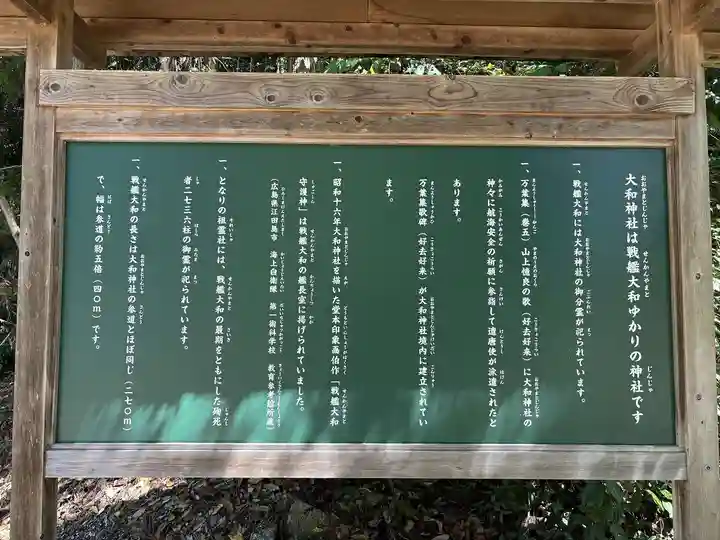 大和神社は戦艦大和ゆかりの神社です
一、戦艦大和には大和神社の御分霊が祀られています。
一、万葉集（巻五）山上憶良の歌（好去好来）に大和神社の
神々に航海安全の祈願に参詣して遣唐使が派遣されたと
あります。
万葉集歌碑（好去好来）が大和神社境内に建立されてい
ます。
一、昭和十六年大和神社を描いた堂本印象画伯作「戦艦大和
守護神」は戦艦大和の艦長室に掲げられていました。
（広島県江田島市　海上自衛隊　第一術科学校　教育参考館所蔵）
一、となりの祖霊社には、戦艦大和の最期をともにした殉死
者二七三六柱の御霊が祀られています。
一、戦艦大和の長さは大和神社の参道とほぼ同じ（二七〇ｍ）
で、幅は参道の約五倍（四〇ｍ）です。